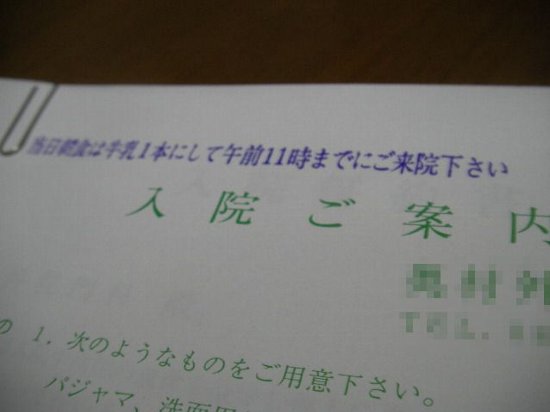 当日朝食は牛乳1本にして午前11時までにご来院下さい
入院ご案内
TEL.
の 1. 次のようなものをご用意下さい。
パジャマ、洗面用